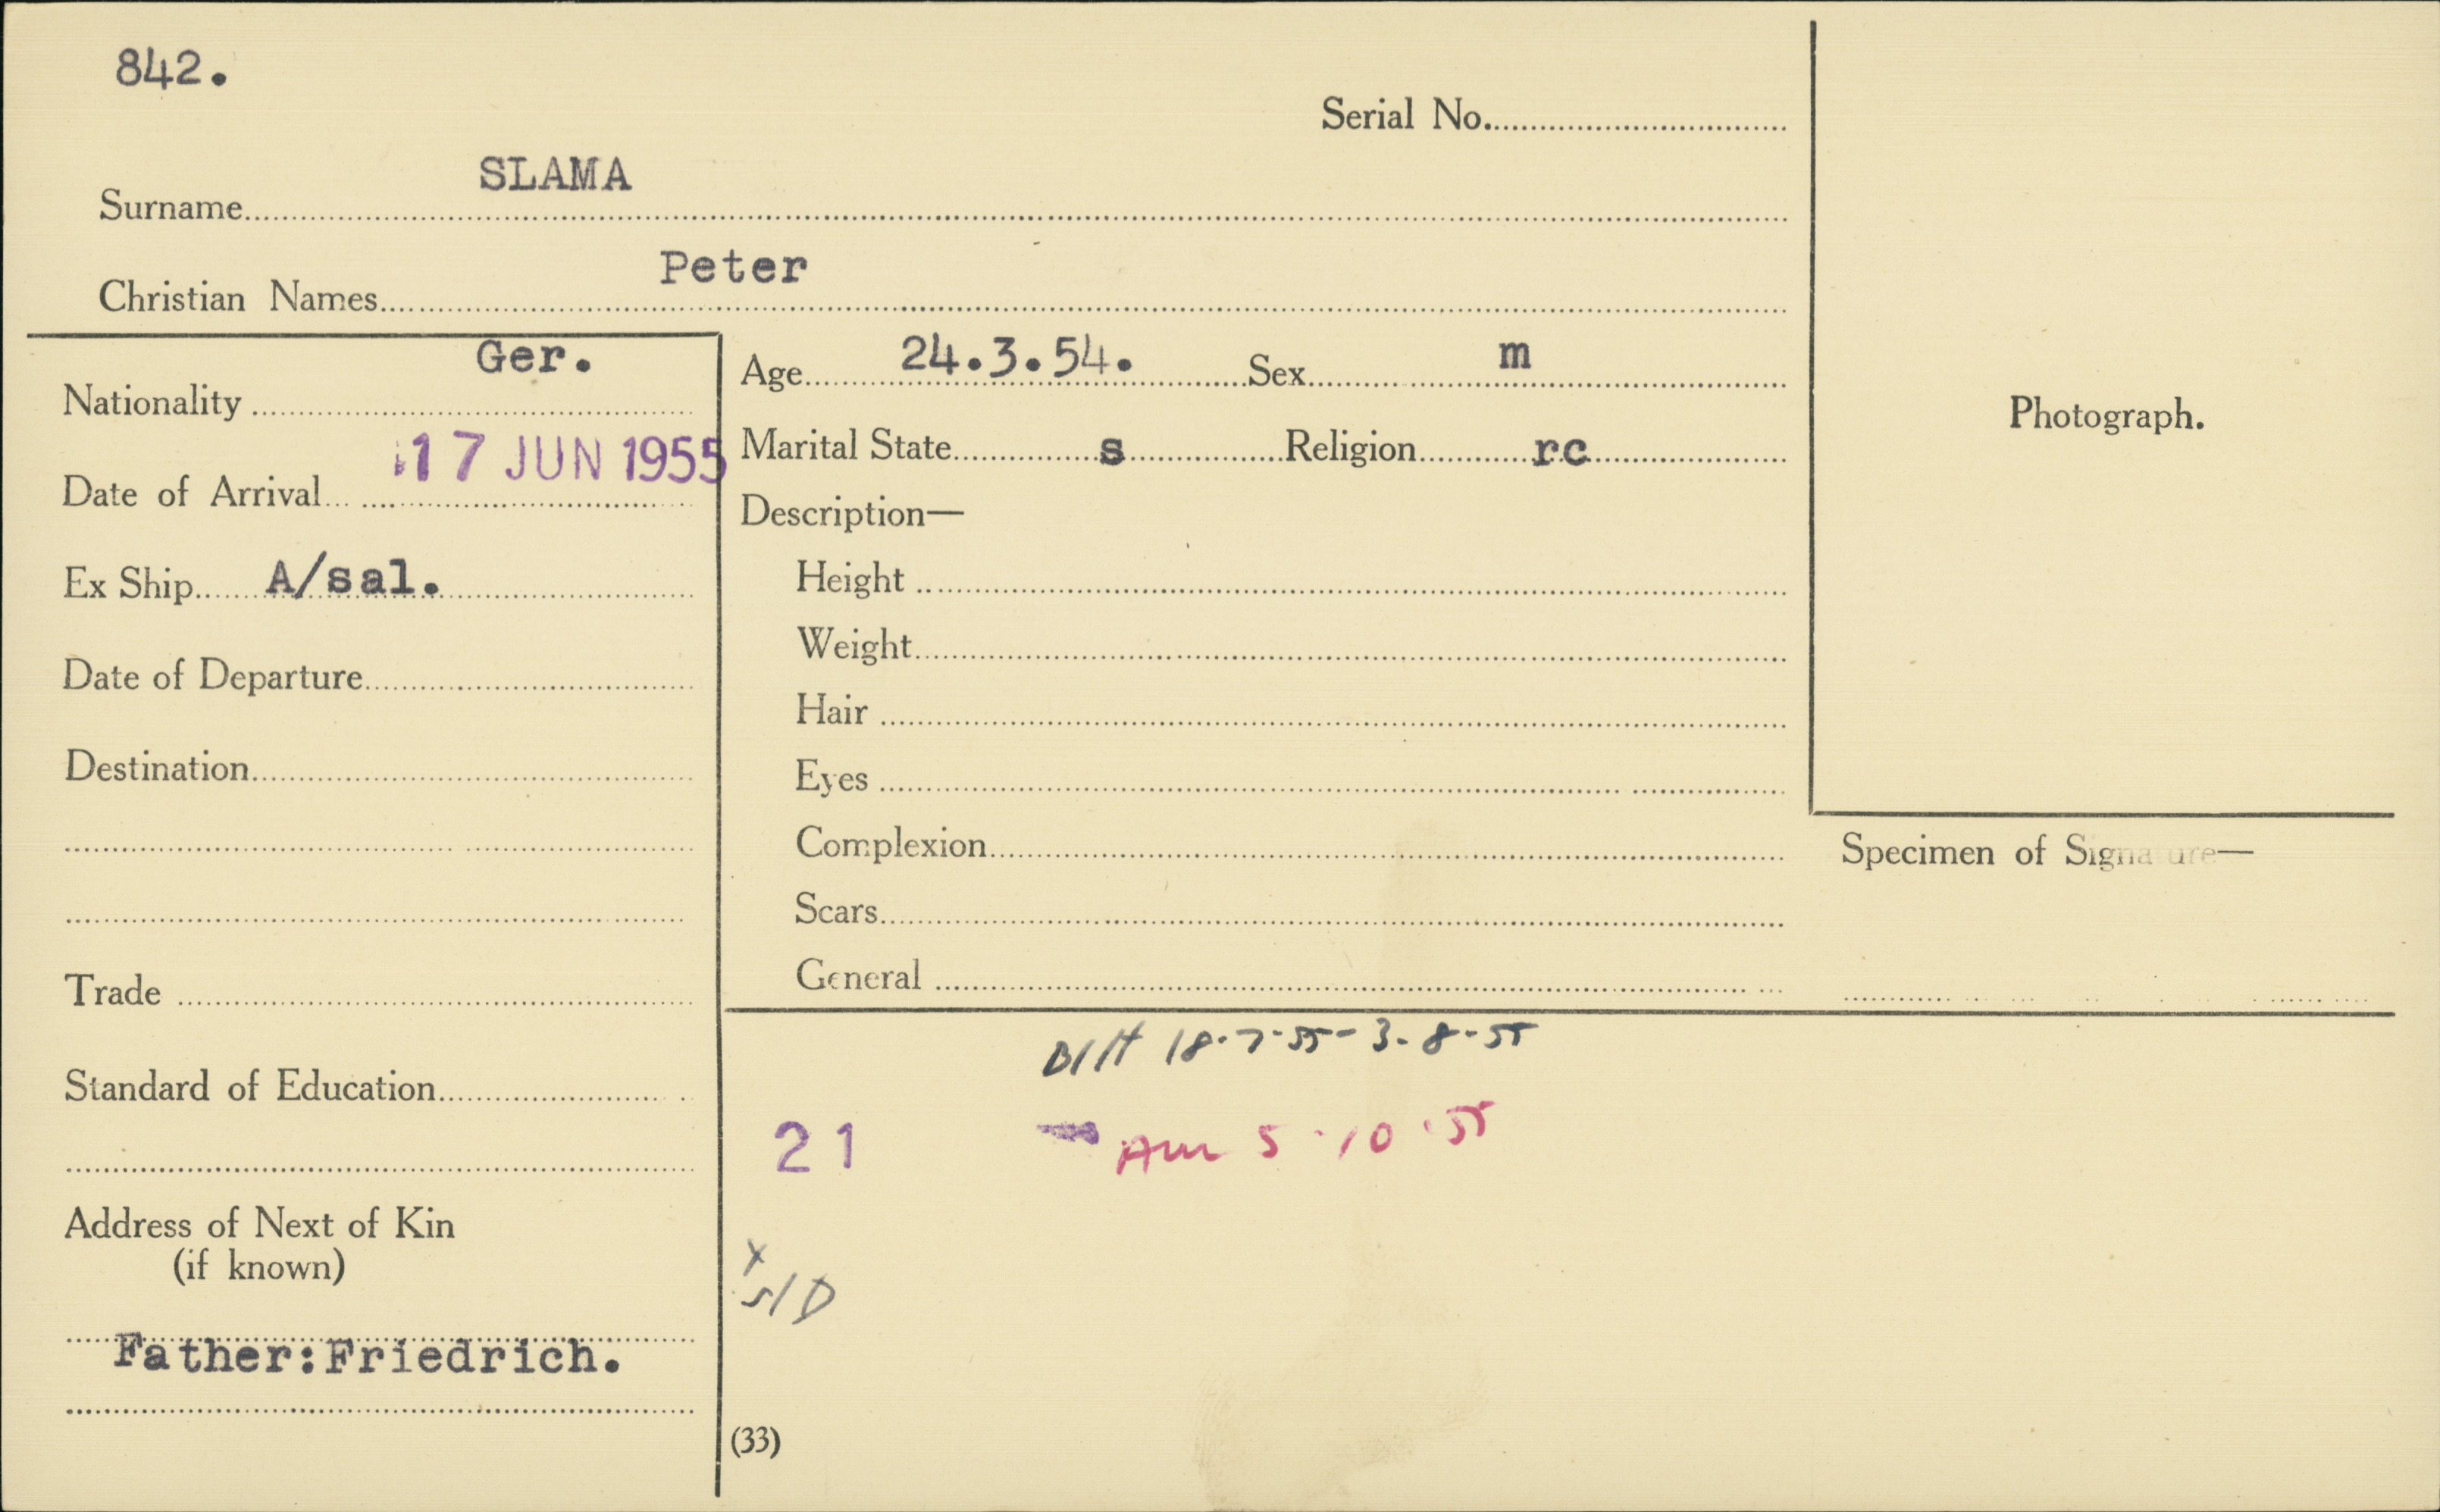 842.
Serial No.
Surname SLAMA
Christian Names Peter
Nationality Ger.
Date of Arrival 17 JUN 1955
Ex Ship A/sal.
Date of Departure
Destination
Trade
Standard of Education
Address of Next of Kin
(if known)
Father:Friedrich.
Age 24.3.54. Sex m
Marital State s Religion rc
Description—
Height
Weight
Hair
Eyes
Complexion
Scars
General
Photograph.
Specimen of Signature—
B/H 18.7.55-3.8.55
21
5.10.55
X
S/D
(33)